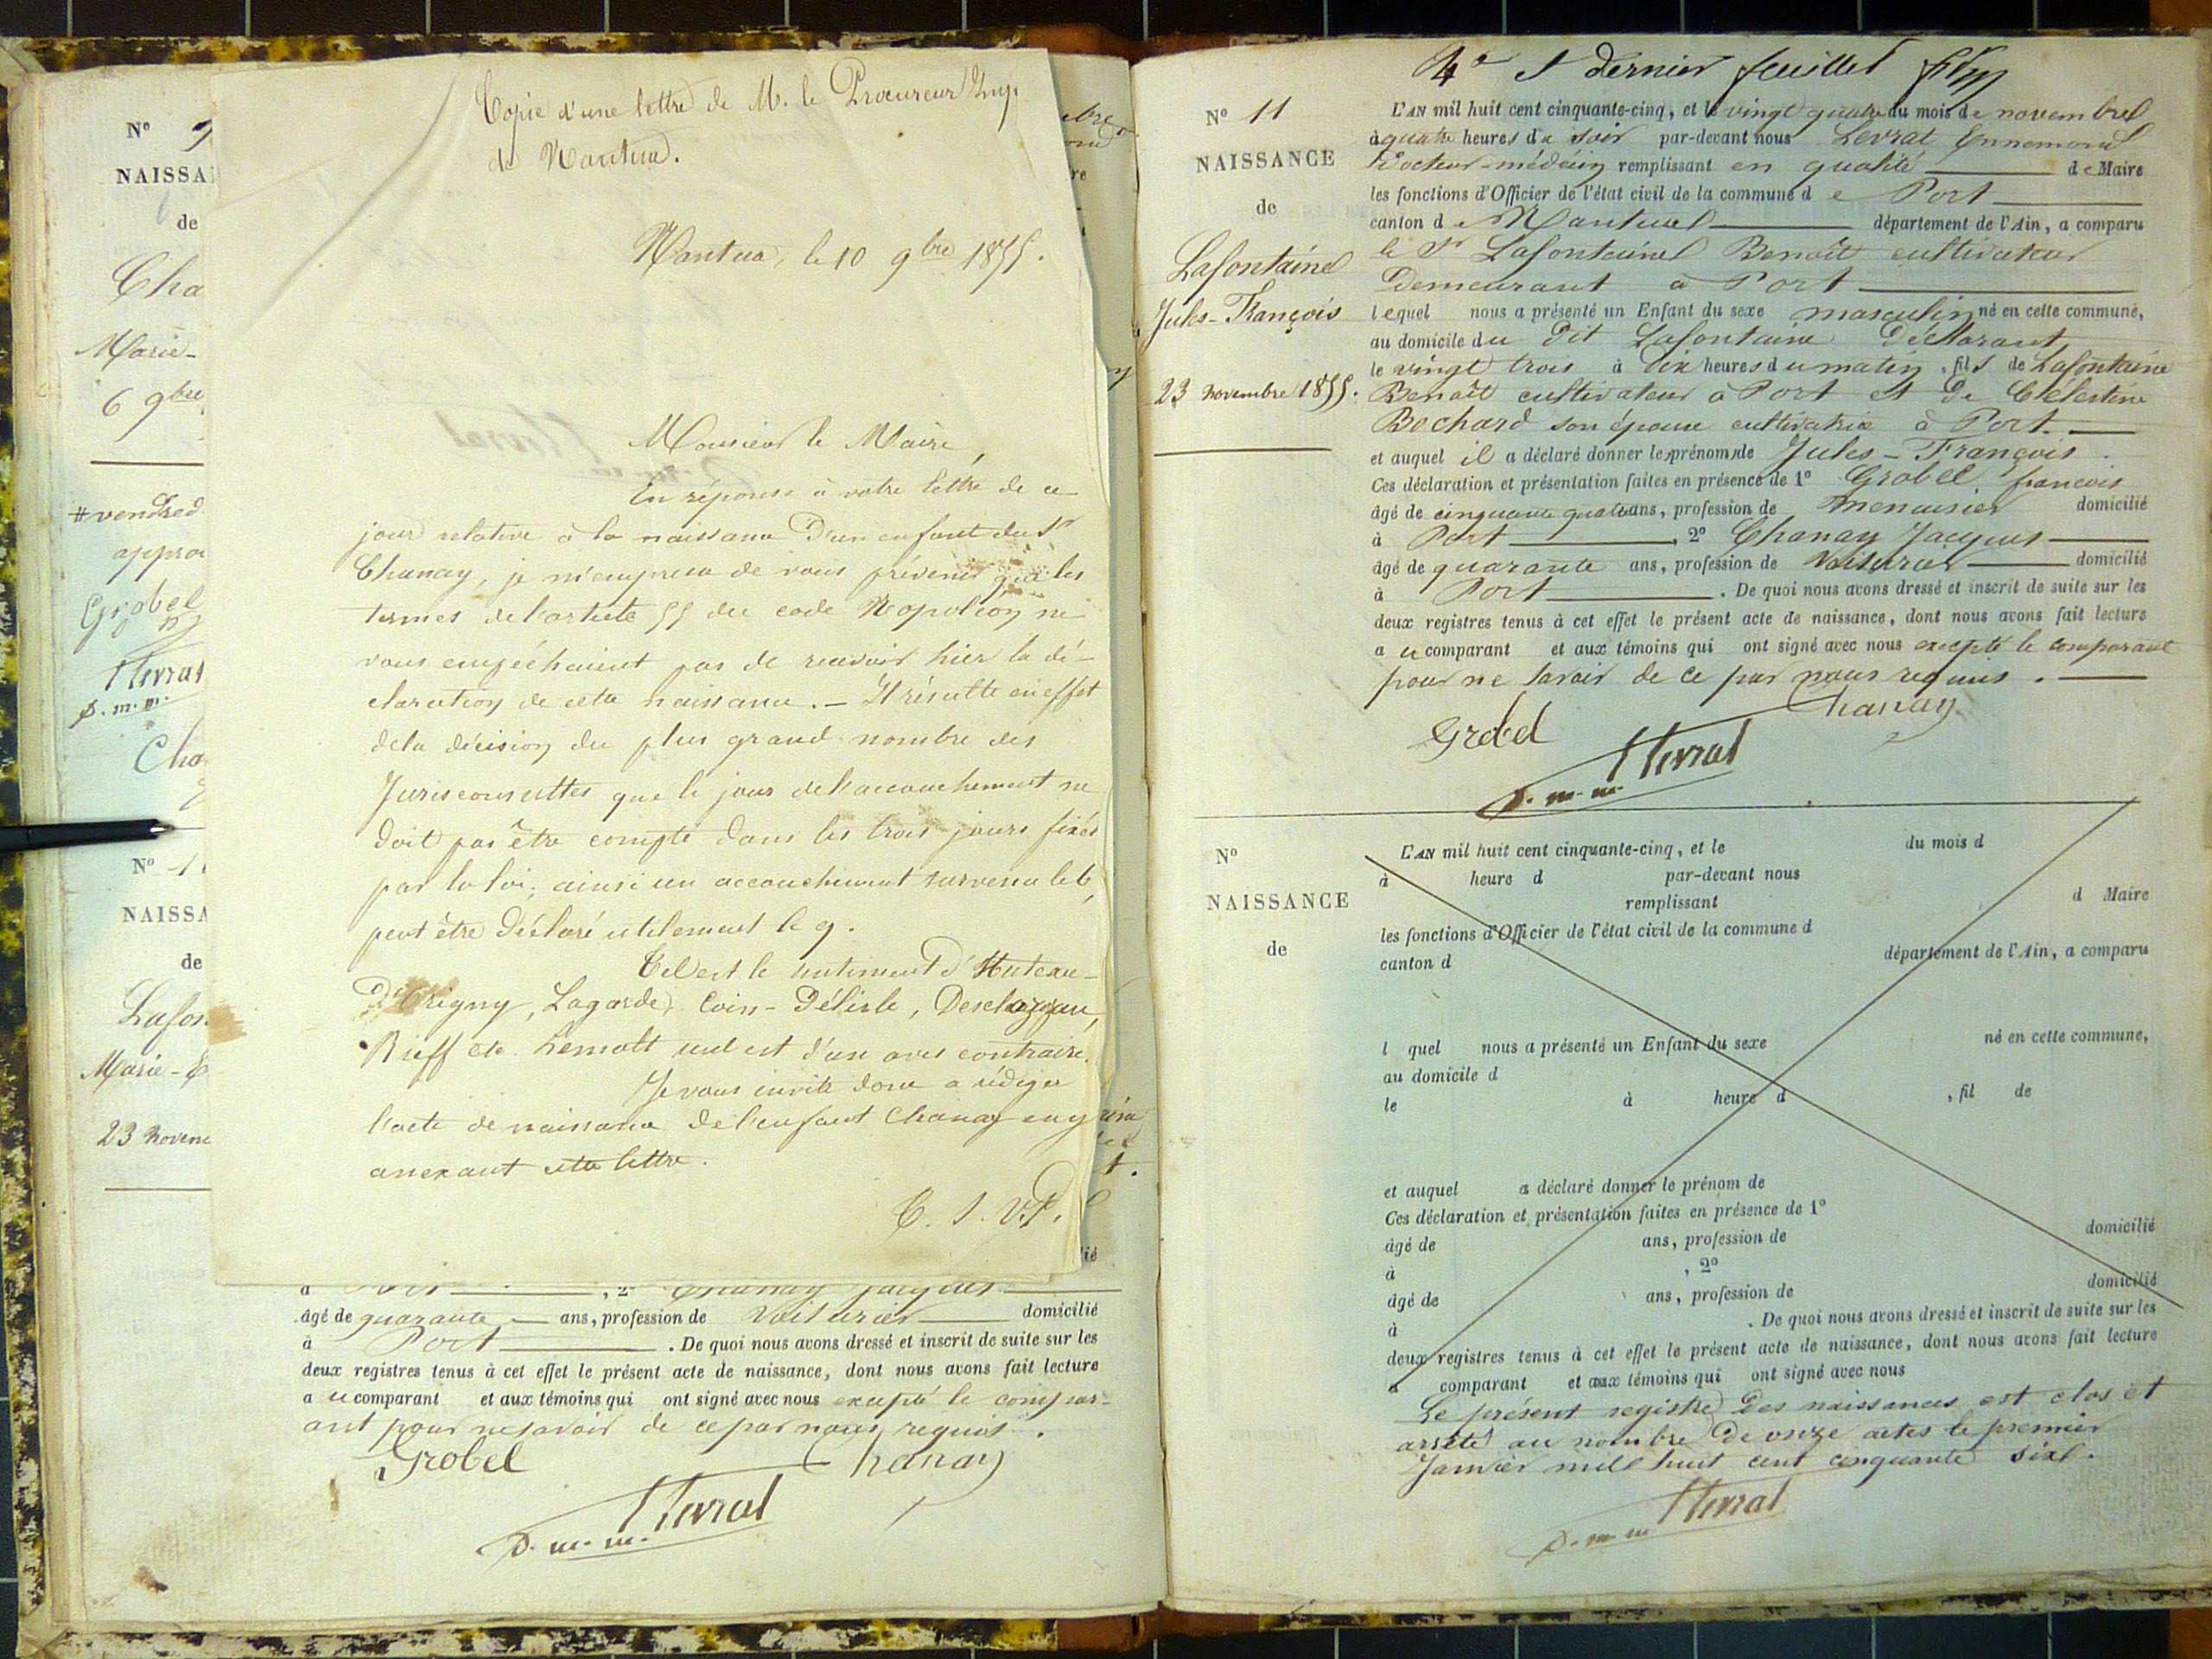 Nº 9
NAISSA
de
Cha
Marie-
6 9bre
# vendred
approu
Grobel
Levrat
D. m. m.
Cha
Nº 1
NAISSA
de
Lafon
Marie-
23 Novem
Copie d'une lettre de M. le Procureur Imp.
de Nantua.
Nantua, le 10 9bre 1855.
Monsieur le Maire,
En réponse à votre lettre de ce
jour relative à la naissance d'un enfant du Sr
Chanay, je m'empresse de vous prévenir que les
termes de l'article 55 du code Napoléon ne
vous empêchaient pas de recevoir hier la dé-
claration de cette naissance. - Il résulte en effet
de la décision du plus grand nombre des
Jurisconsultes que le jour de l'accouchement ne
doit pas être compté dans les trois jours fixés
par la loi; ainsi un accouchement survenu le 6,
peut être déclaré utilement le 9.
Tel est le sentiment d'Huteau-
D'Origny, Lagarde, Coin-Délisle, Desclozeau,
Rieff etc. seul est d'un avis contraire.
Je vous invite donc a rédiger
l'acte de naissance de l'enfant Chanay en y
anexant cette lettre.
T. S. V. P.
à Port, 2º Chanay Jacques
âgé de quarante ans, profession de Voiturier domicilié
à Port. De quoi nous avons dressé et inscrit de suite sur les
deux registres tenus à cet effet le présent acte de naissance, dont nous avons fait lecture
au comparant et aux témoins qui ont signé avec nous excepté le compar-
ant pour ne savoir de ce par nous requis.
Grobel Chanay
Levrat
D. m. m.
4e & dernier feuillet
Nº 11
NAISSANCE
de
Lafontaine
Jules-François
23 novembre 1855.
L'AN mil huit cent cinquante-cinq, et le vingt quatre du mois de novembre
à quatre heures du soir par-devant nous Levrat Ennemond
Docteur-médecin remplissant en qualité de Maire
les fonctions d'Officier de l'état civil de la commune de Port
canton de Nantua département de l'Ain, a comparu
le Sr Lafontaine Benoît cultivateur
Demeurant à Port
lequel nous a présenté un Enfant du sexe masculin né en cette commune,
au domicile du dit Lafontaine Déclarant
le vingt trois à dix heures du matin, fils de Lafontaine
Benoît cultivateur à Port et de Célestine
Bochard son épouse cultivatrice à Port.
et auquel il a déclaré donner les prénoms de Jules-François.
Ces déclaration et présentation faites en présence de 1º Grobel francois
âgé de cinquante quatre ans, profession de menuisier domicilié
à Port, 2º Chanay Jacques
âgé de quarante ans, profession de Voiturier domicilié
à Port. De quoi nous avons dressé et inscrit de suite sur les
deux registres tenus à cet effet le présent acte de naissance, dont nous avons fait lecture
au comparant et aux témoins qui ont signé avec nous excepté le comparant
pour ne savoir de ce par nous requis.
Grobel Chanay
Levrat
D. m. m.
Nº
NAISSANCE
de
L'AN mil huit cent cinquante-cinq, et le du mois d
à heure d par-devant nous
remplissant d Maire
les fonctions d'Officier de l'état civil de la commune d
canton d département de l'Ain, a comparu
l quel nous a présenté un Enfant du sexe né en cette commune,
au domicile d
le à heure d , fil de
et auquel a déclaré donner le prénom de
Ces déclaration et présentation faites en présence de 1º
âgé de ans, profession de domicilié
à , 2º
âgé de ans, profession de domicilié
à . De quoi nous avons dressé et inscrit de suite sur les
deux registres tenus à cet effet le présent acte de naissance, dont nous avons fait lecture
a comparant et aux témoins qui ont signé avec nous
Le présent registre des naissances est clos et
arrêté au nombre de onze actes le premier
Janvier mil huit cent cinquante six.
Levrat
D. m. m